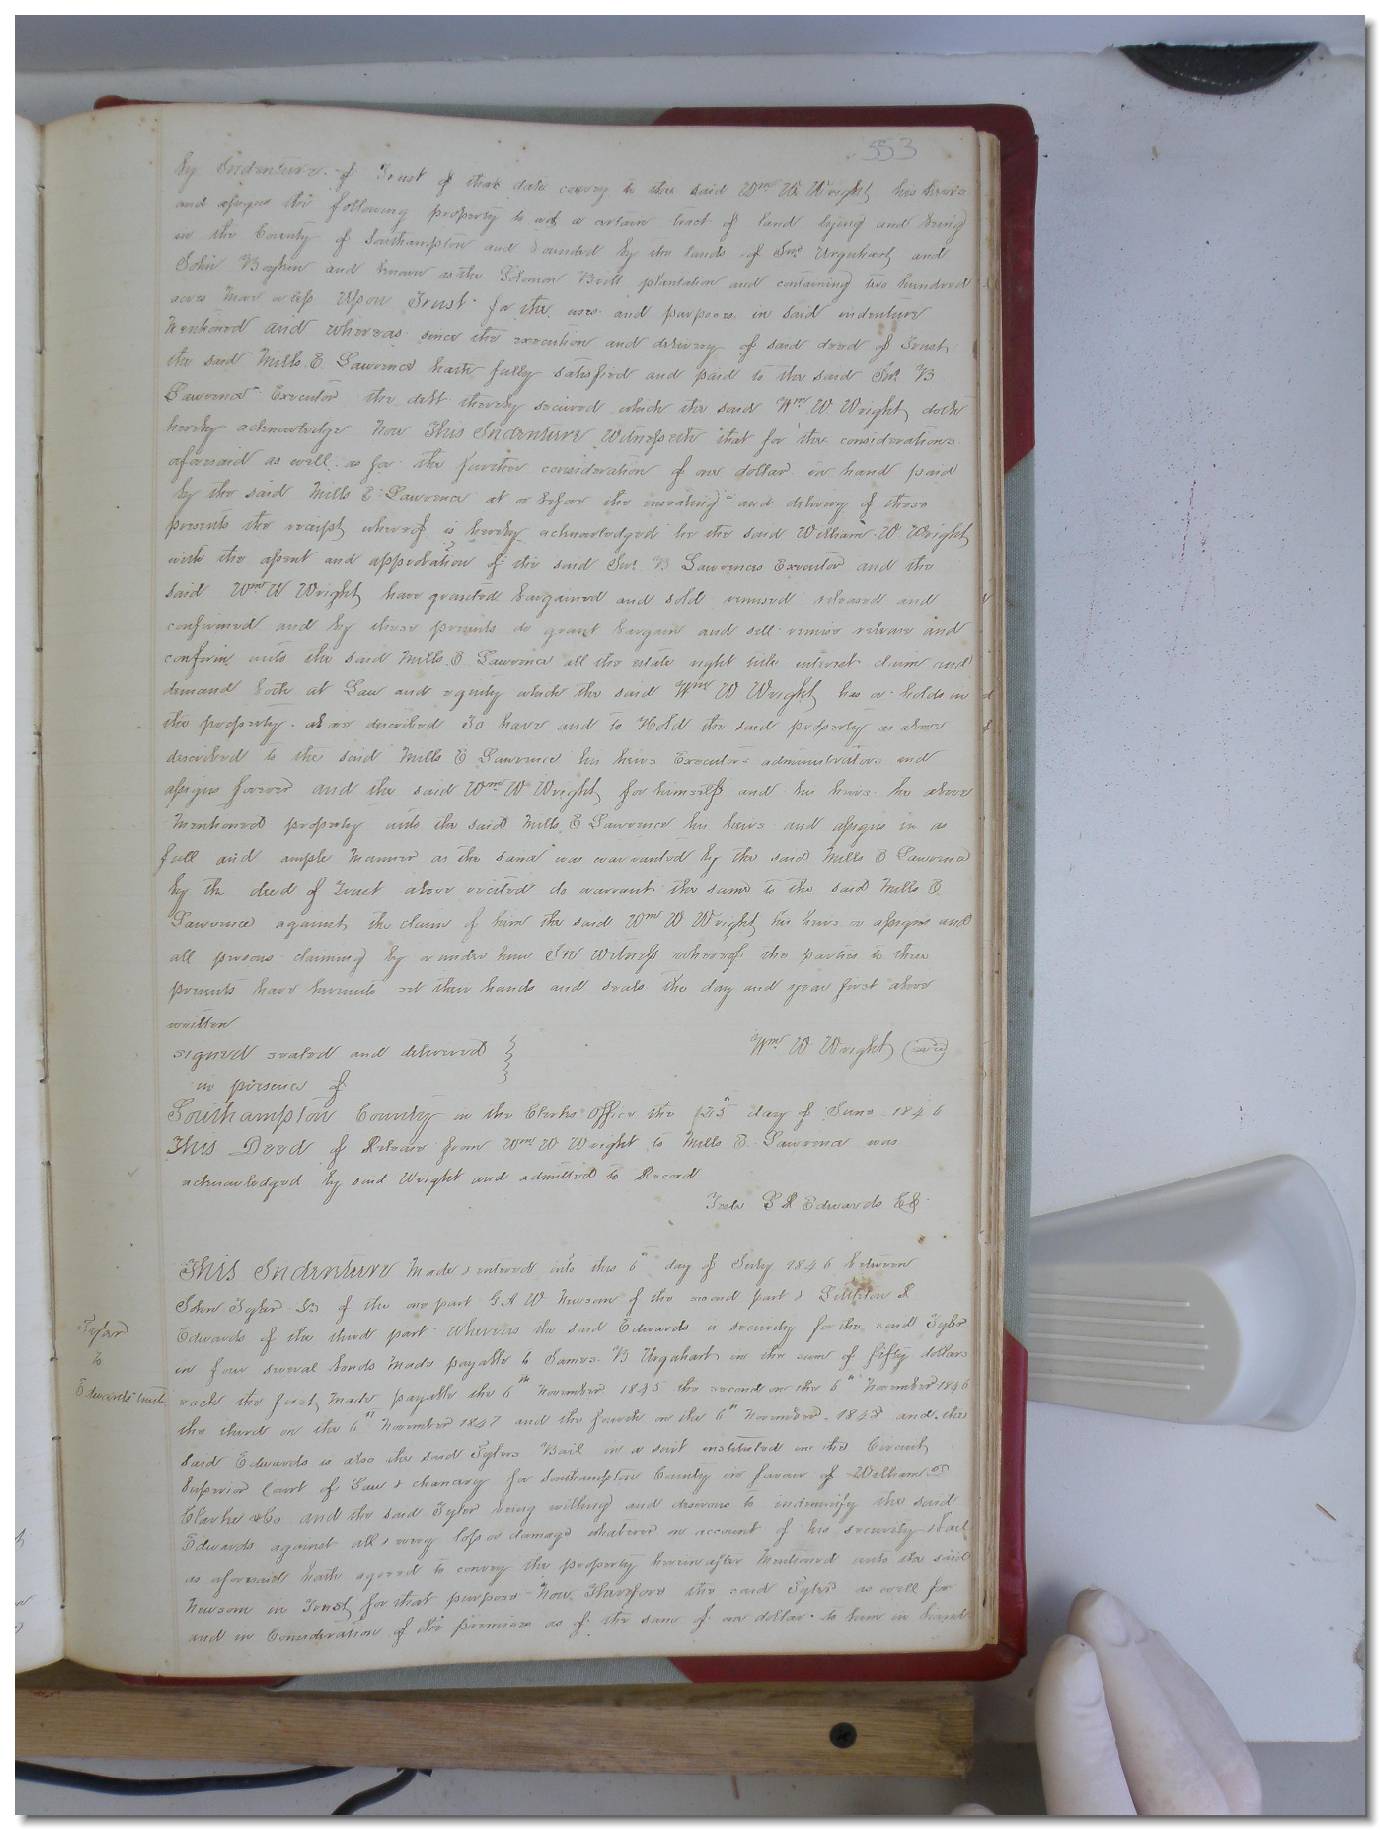 553
by Indenture of Trust of that date convey to the said Wm W Wright his heirs
and assigns the following property to wit a certain tract of land lying and being
in the County of Southampton and bounded by the lands of Jno Urquhart and
John Boykin and known as the Solomon Britt plantation and containing two hundred
acres more or less Upon Trust for the uses and purposes in said indenture
Mentioned and whereas since the execution and delivery of said deed of Trust
the said Mills E Lawrence hath fully satisfied and paid to the said Jno B
Lawrence Executor the debt thereby secured which the said Wm W Wright doth
hereby acknowledge Now This Indenture Witnesseth that for the considerations
aforesaid as well as for the further consideration of one dollar in hand paid
by the said Mills E Lawrence at or before the ensealing and delivery of these
presents the receipt whereof is hereby acknowledged he the said William W Wright
with the assent and approbation of the said Jno B Lawrence Executor and the
said Wm W Wright have granted bargained and sold remised released and
confirmed and by these presents do grant bargain and sell remise release and
confirm unto the said Mills E Lawrence all the estate right title interest claim and
demand both at Law and equity which the said Wm W Wright has or holds in
the property above described To have and to Hold the said property as above
described to the said Mills E Lawrence his heirs Executors administrators and
assigns forever and the said Wm W Wright for himself and his heirs he above
Mentioned property unto the said Mills E Lawrence his heirs and assigns in as
full and ample Manner as the same was warranted by the said Mills E Lawrence
by the deed of Trust above recited do warrant the same to the said Mills E
Lawrence against the claim of him the said Wm W Wright his heirs or assigns and
all persons claiming by or under him In Witness whereof the parties to these
presents have hereunto set their hands and seals the day and year first above
written
signed sealed and delivered
Wm W Wright (seal)
in presence of
Southampton County in the Clerks Office the 25 day of June 1846
This Deed of Release from Wm W Wright to Mills E Lawrence was
acknowledged by said Wright and admitted to Record
Teste L R Edwards CC
This Indenture Made & entered into this 6th day of July 1846 between
John Tyler of the one part G A W Newsom of the second part & Littleton R
Tyler
to
Edwards trust
Edwards of the third part Whereas the said Edwards is security for the said Tyler
in four several bonds made payable to James B Urquhart in the sum of fifty dollars
each the first Made payable the 6th November 1845 the second on the 6th November 1846
the third on the 6th November 1847 and the fourth on the 6th November 1848 and the
said Edwards is also the said Tylers Bail in a suit instituted in the Circuit
Superior Court of Law & chancery for Southampton County in favour of William
Clarke & Co and the said Tyler being willing and desirous to indemnify the said
Edwards against all & every loss or damage whatever on account of his security & bail
as aforesaid hath agreed to convey the property herein after Mentioned unto the said
Newsom in Trust for that purpose Now Therefore the said Tyler as well for
and in Consideration of the premises as of the sum of one dollar to him in hand